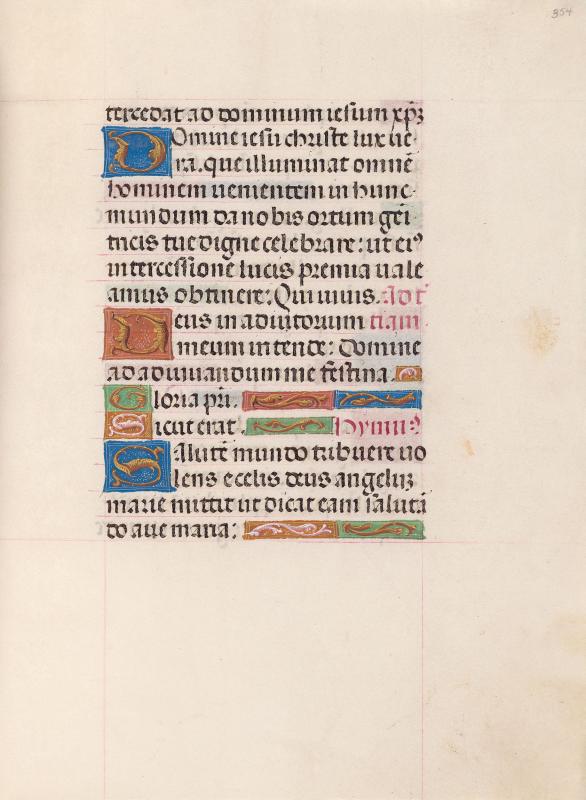 354
tercedat ad dominum iesum xp̄ꝫ
Domine iesu christe lux ue
ra. que illuminat omnē
hominem uenientem in hunc
mundum da nobis ortum gēi
tricis tue digne celebrare: ut eiꝰ
intercessione lucis premia uale
amus obtinere: Qui uiuis. Ad t͛
Deus in adiutorium tiam
meum intende: Domine
ad adiuuandum me festina.
Gloria pr̄i.
Sicut erat. Hymuꝰ
Salutē mundo tribuere uo
lens e celis deus angeluꝫ
marie mittit ut dicat eam salutā
do aue maria: